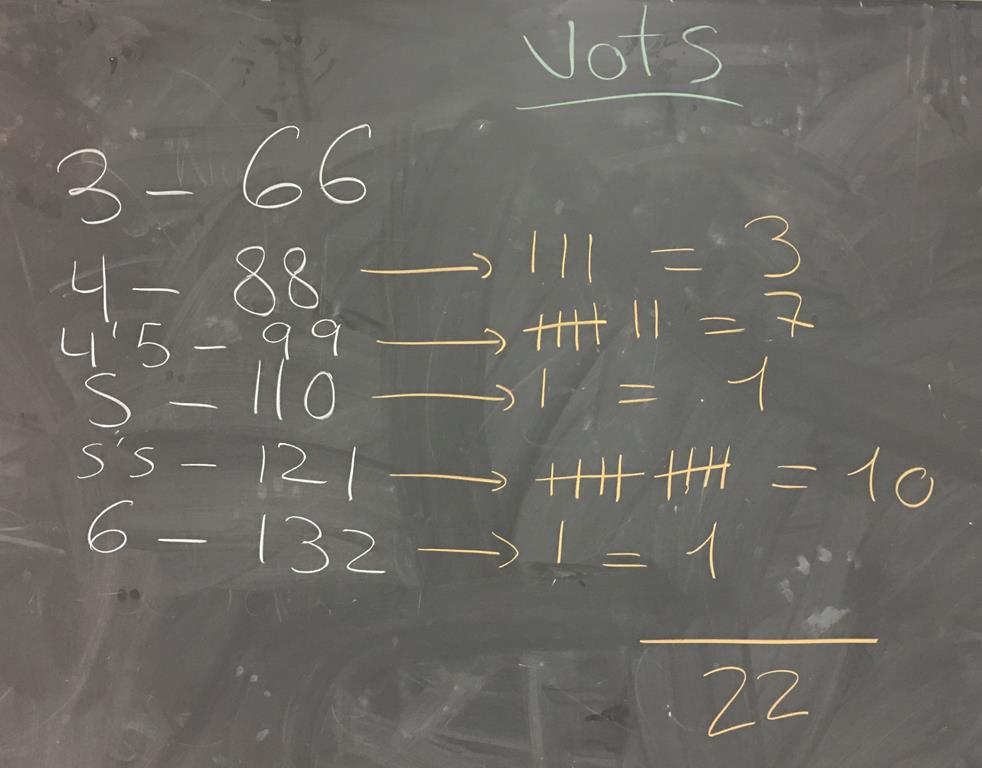 Vots
3 - 66
4 - 88 → III = 3
4'5 - 99 → IIIII II = 7
5 - 110 → I = 1
5'5 - 121 → IIIII IIIII = 10
6 - 132 → I = 1
22